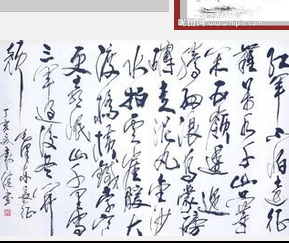 www.nipic.com
红军不怕远征
难万水千山只等
闲五岭逶迤
腾细浪乌蒙磅
礴走泥丸金沙
水拍云崖暖大
渡桥横铁索寒
更喜岷山千里雪
三军过后尽开
颜
长征
丁亥